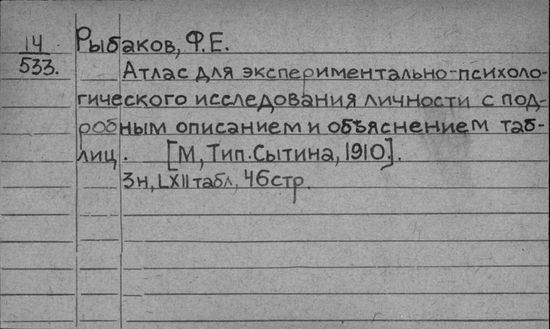 14
533.
Рыбаков, Ф.Е.
Атлас для экспериментально-психоло-
гического исследования личности с под-
робным описанием и объяснением таб-
лиц. [М, Тип. Сытина, 1910].
3н, LXII табл, 46стр.